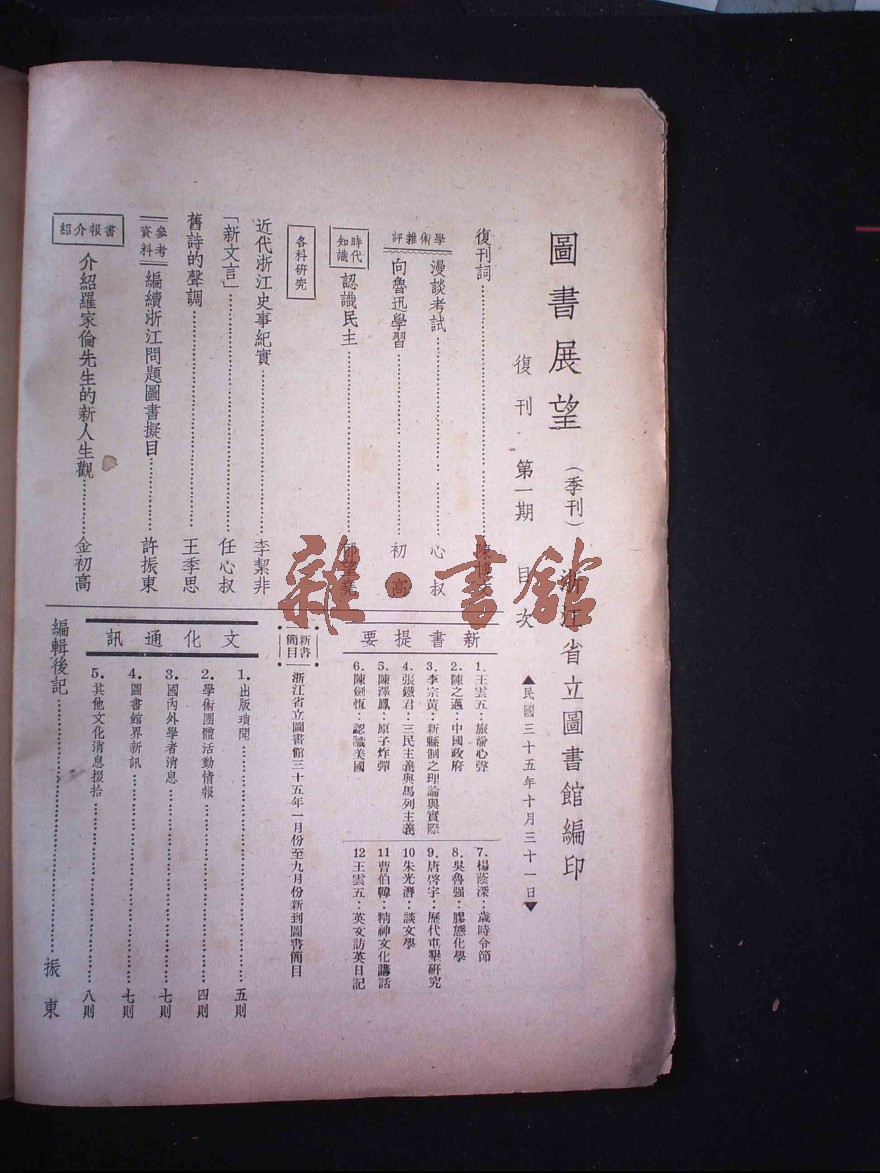 圖書展望（季刊）浙江省立圖書館編印
復刊 第一期 目次
▲民國三十五年十月三十一日▼
復刊詞
學術雜評
漫談考試 心叔
向魯迅學習 初高
時代知識
認識民主 郁望堯
各科研究
近代浙江史事紀實 李絜非
「新文言」 任心叔
舊詩的聲調 王季思
參考資料
編續浙江問題圖書擬目 許振東
書報介紹
介紹羅家倫先生的新人生觀 金初高
新書提要
1. 王雲五：旅渝心聲
2. 陳之邁：中國政府
3. 李宗黃：新縣制之理論與實際
4. 張鐵君：三民主義與馬列主義
5. 陳澤鳳：原子炸彈
6. 陳劍恆：認識美國
7. 楊蔭深：歲時令節
8. 吳魯强：膠態化學
9. 唐啓宇：歷代屯墾研究
10 朱光潛：談文學
11 曹伯韓：精神文化講話
12 王雲五：英文訪英日記
新書簡目
浙江省立圖書館三十五年一月份至九月份新到圖書簡目
文化通訊
1. 出版瑣聞 五則
2. 學術團體活動情報 四則
3. 國內外學者消息 七則
4. 圖書館界新訊 七則
5. 其他文化消息掇拾 八則
編輯後記 振東
雜·書館